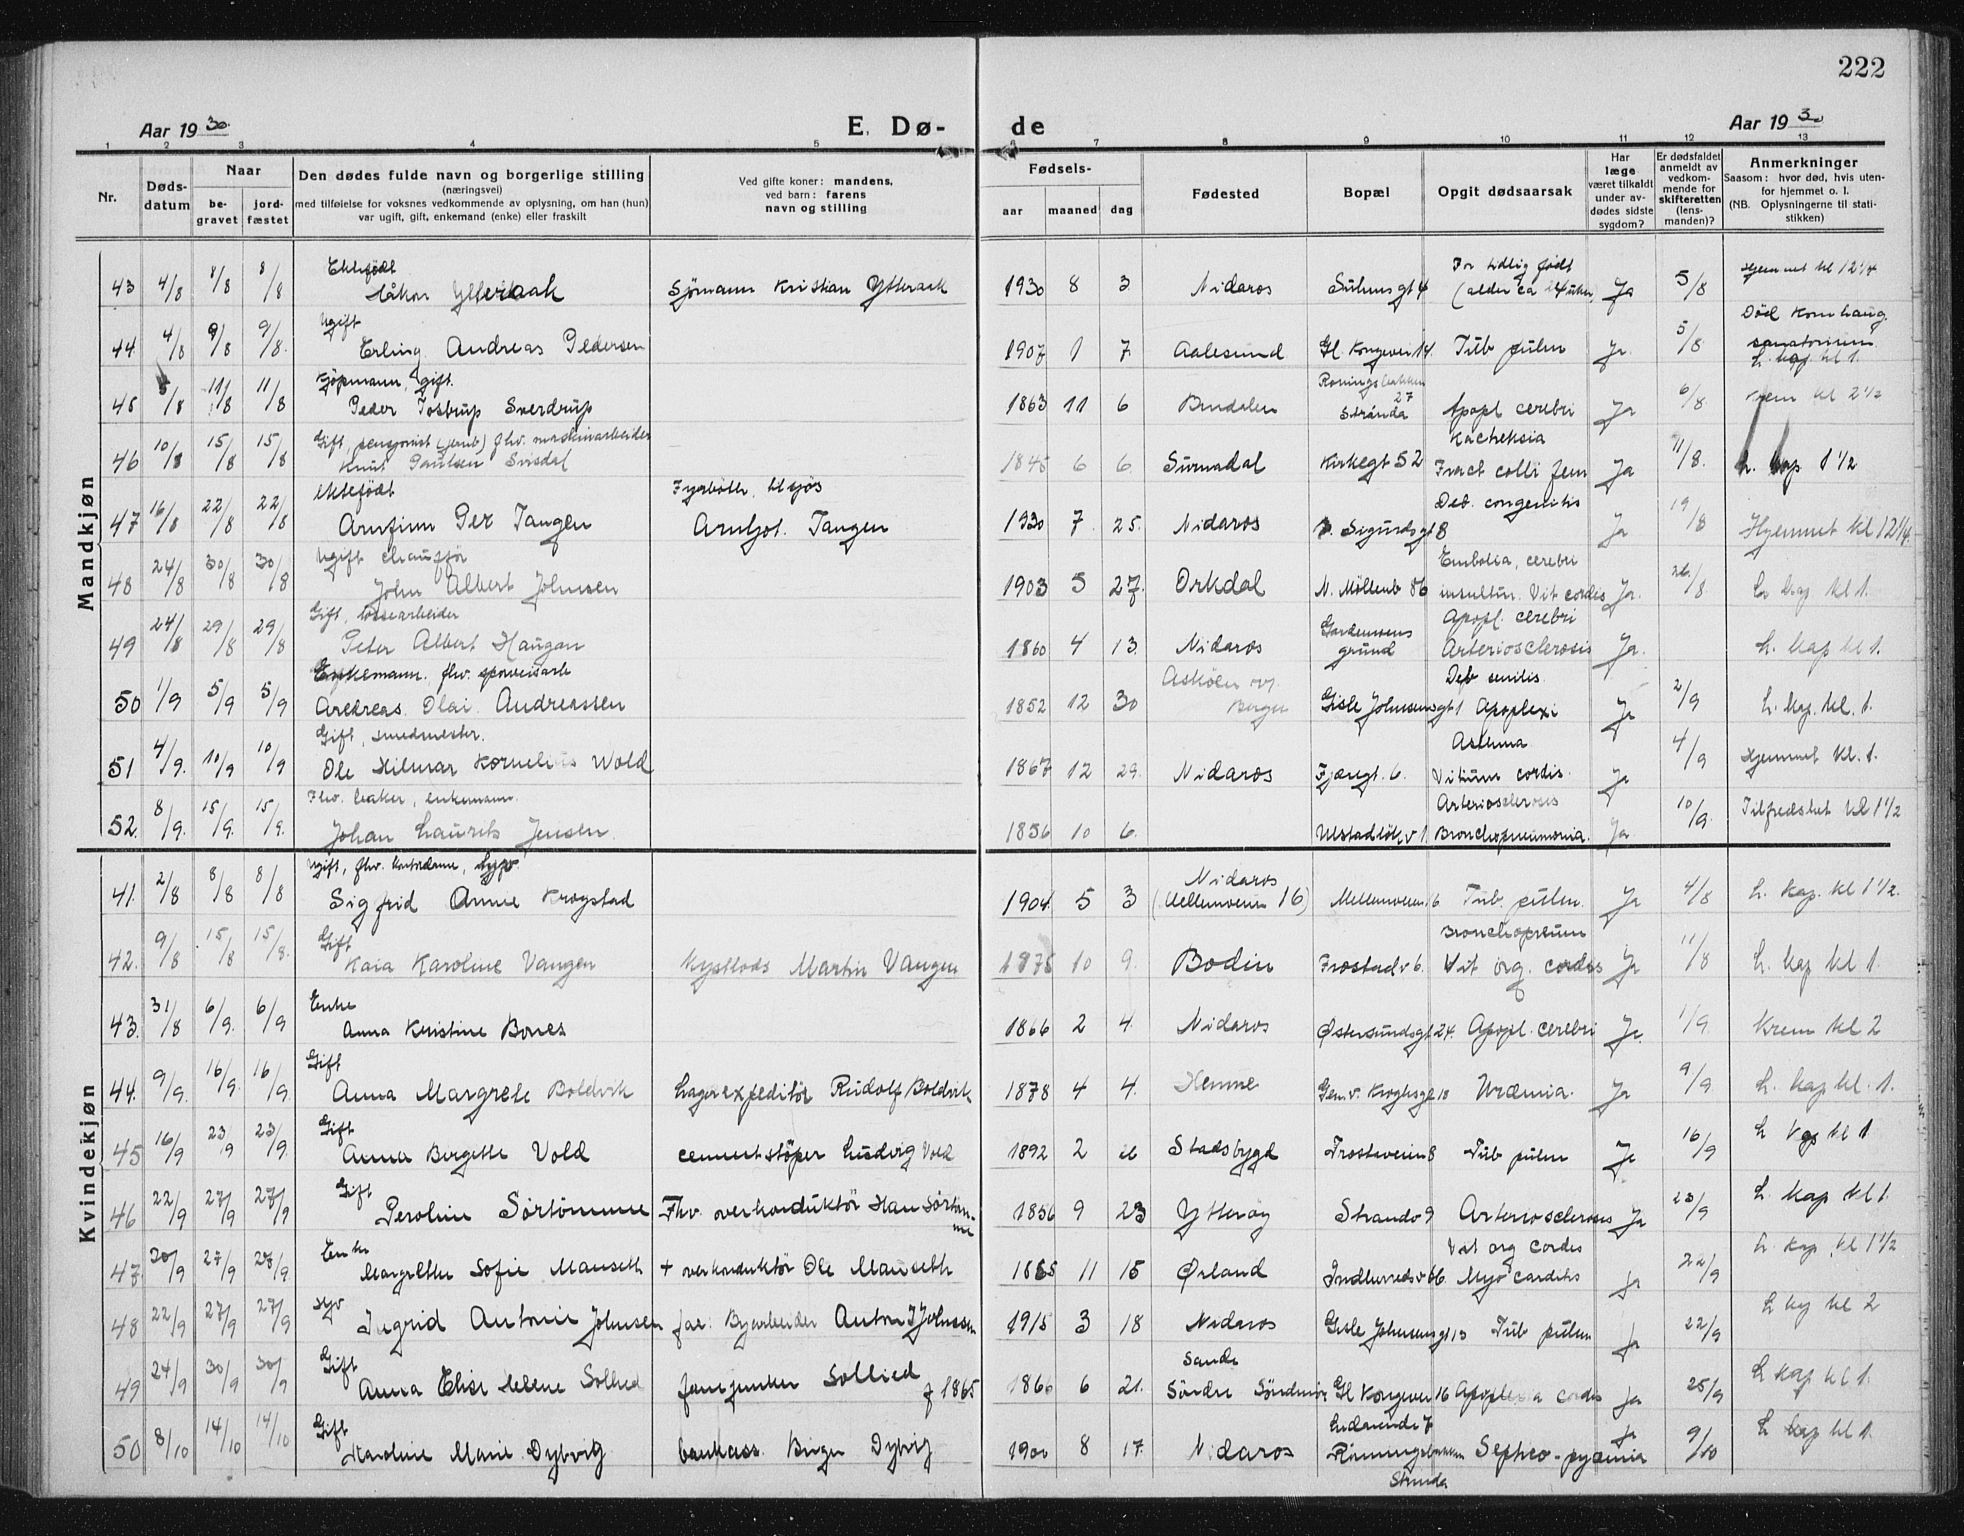 222
Aar 1930.
E. Dø-
de
Aar 1930
1 2 3 4 5 6 7 8 9 10 11 12 13
Nr.
Døds-
datum
Naar
be-
gravet
jord-
fæstet
Den dødes fulde navn og borgerlige stilling
(næringsvei)
med tilføielse for voksnes vedkommende av oplysning, om han (hun)
var ugift, gift, enkemand (enke) eller fraskilt
Ved gifte koner: mandens,
ved barn: farens
navn og stilling
Fødsels-
aar maaned dag
Fødested
Bopæl
Opgit dødsaarsak
Har
læge
været tilkaldt
under av-
dødes sidste
sygdom?
Er dødsfaldet
anmeldt av
vedkom-
mende for
skifteretten
(lens-
manden)?
Anmerkninger
Saasom: hvor død, hvis uten-
for hjemmet o. l.
(NB. Oplysningerne til stati-
stikken)
Mandkjøn
Ektefødt For tidlig født Hjemmet kl 12 1/4
43 4/8 8/8 8/8 Håkon Ytteraak Sjømann Kristian Ytteraak 1930 8 3 Nidaros gt 4 (alder ca uker) Ja 5/8
Ugift Død Kornhaug
44 4/8 9/8 9/8 Erling Andreas Pedersen 1907 1 7 Aalesund Gl. Kongevei 14 Tub pulm Ja 5/8 sanatorium
L. kap kl 1.
Kjøpmann, gift.
45 5/8 11/8 11/8 Peder Tostrup Sverdrup 1863 11 6 Strinda 27 Apopl cerebri Ja 6/8 kl 2 1/2
Gift, pensjonist fhv. maskinarbeider Kacheksia
46 10/8 15/8 15/8 Knut Paulsen 1845 6 6 Surnadal Kirkegt 52 Fract colli fem Ja 11/8. L. kap 1 1/2
Ektefødt Deb. congenitis
47 16/8 22/8 22/8 Arnfinn Per Tangen Tangen 1930 7 25. Nidaros Sigurdsgt 8 Ja 19/8 Hjemmet kl 12 1/4.
Ugift chauffør Embolia, cerebri
48 24/8 30/8 30/8 John Albert Johnsen 1903 5 27. Orkdal N. Møllenb 86 Vit cordis Ja. 26/8. L. kap kl 1.
Gift, lossearbeider Apopl. cerebri
49 24/8 29/8 29/8 Peter Albert Haugan 1860 4 13. Nidaros grund Arteriosclerosis Ja. L. kap kl 1.
Enkemann. fhv. sporveisarb Askøen v/ Deb senilis
50 1/9 5/9 5/9 Andreas Olai Andreassen 1852 12 30 Bergen Gisle Johnsensgt 1 Apoplexi Ja 2/9 L. kap. kl. 1.
Gift, smedmester. Asthma
51 4/9. 10/9 10/9 Ole Hilmar Kornelius Wold 1867 12 29. Nidaros Fjæregt. 6. Vitium cordis. Ja 4/9 Hjemmet kl. 1.
Fhv. baker, enkemann. Arteriosclerosis
52. 8/9. 15/9. 15/9. Johan Laurits Jensen. 1856 10 6. v 1 Bronchopneumonia. Ja 10/9. Tilfredshet kl 1 1/2
Kvindekjøn
Ugift, fhv. Nidaros
41. 2/8 8/8 8/8 Sigfrid Annie Krogstad 1904. 5 3 (Mellemveien 16) Mellemveien 16 Tub. pulm. Ja 4/8 L. kap. kl 1 1/2.
Gift Bronchopneum
42. 9/8 15/8 15/8. Kaia Karoline Vangen Kystlods Martin Vangen 1875 10 9. Bodin Frostad v 6. Vit org. cordis Ja 11/8 L. kap kl 1.
Enke
43. 31/8 6/9. 6/9 Anna Kristine Bones 1866 2 4. Nidaros Østersundsgt 24. Apopl. cerebri Ja 1/9. Krem kl 2
Gift
44. 9/9. 16/9. 16/9. Anna Margrete Boldvik Lagerexpeditør Rudolf Boldvik 1878 4 4. Hemne Gen. v. Kroghsgt 18 Uræmia. Ja 9/9 L. kap kl. 1.
Gift
45 16/9 23/9 23/9. Anna Bergette Vold cementstøper Ludvig Vold 1892 2 Stadsbygd Frostaveien 8 Tub pulm Ja 16/9 L kap kl 1
Gift
46 22/9 27/9 27/9 Peroline Sørtømme Fhv. overkonduktør Hans Sørtøm-
me 1856 9 23 Ytterøy Strandv 9 Arteriosclerosis Ja 23/9 L. kap kl 1.
Enke Vit org cordis
47 20/9 27/9 28/9 Margrethe Sofie Mauseth + overkonduktør Ole Mauseth 1865 11 15 Ørland Indherredsv 66 Myocarditis Ja 22/9 L. kap kl 1 1/2
syv
48 22/9 27/9 27/9 Ingrid Antonie Johnsen far: Byarbeider Anton J Johnsen 1915 3 18 Nidaros Gisle Johnsensgt 13 Tub pulm Ja 22/9 L kap kl 2
Gift Sande
49 24/9 30/9 30/9 Anna Elise Helene Sollied fanejunker Sollied f 1865 1866 6 21. Søndre Søndmør Gl Kongevei 16 Apoplexia cordis Ja 25/9 L kap kl 1.
Gift
50 8/10 14/10 14/10 Karoline Marie Dybvig bankass. Birger Dybvig 1900 8 17. Nidaros Rønningsbakken
Strinda Septico-pyæmia Ja 9/10 L kap kl 1.